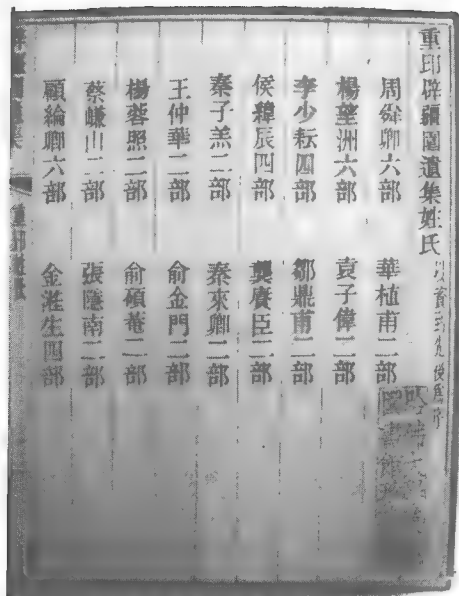 重印辟疆園遺集姓氏
周舜卿六部 華植甫二部
楊望洲六部 袁子偉二部
李少耘四部 鄒鼎甫二部
侯緯辰四部 龔賡臣二部
秦子羔二部 秦東卿二部
王仲華二部 俞金門二部
楊蓉照二部 俞碩菴二部
蔡嵰山二部 張隱南二部
顧綸卿六部 金湛生四部